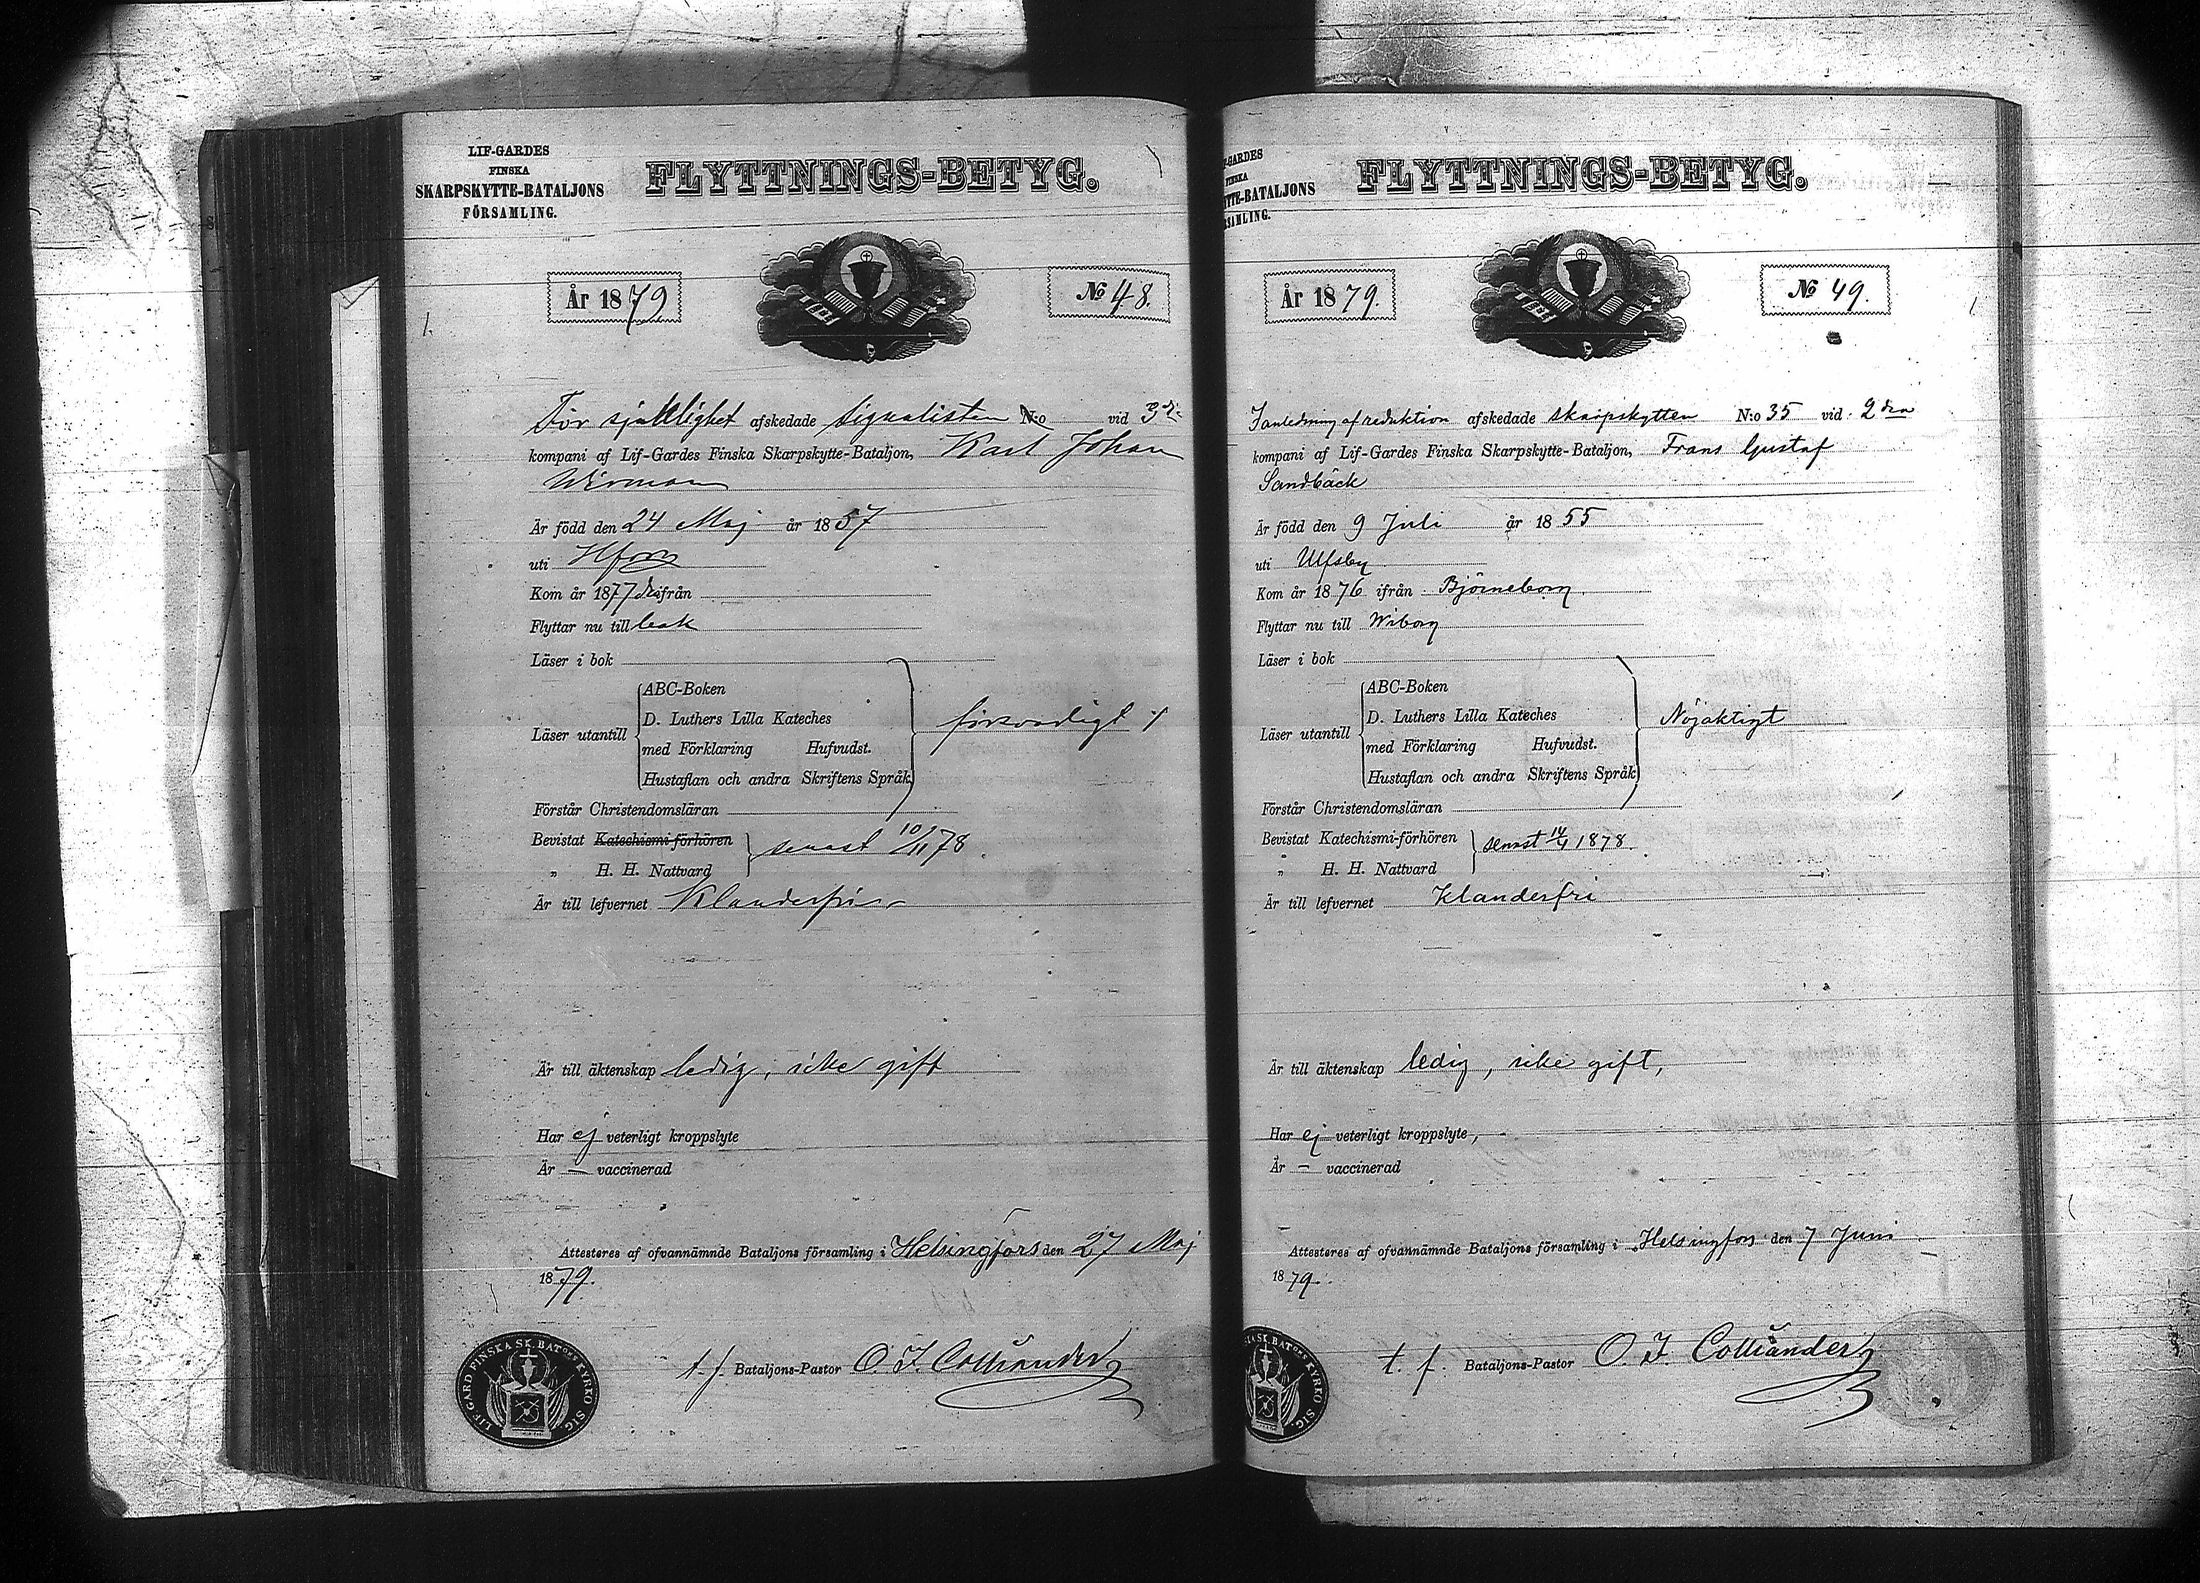 LIF-GARDES
FINSKA
SKARPSKYTTE-BATALJONS
FÖRSAMLING.
FLYTTNINGS-BETYG.
År 1879
№ 48.
För sjuklighet afskedade signalisten N:o vid 3dje
kompani af Lif-Gardes Finska Skarpskytte-Bataljon, Karl Johan
Wirman
Är född den 24 Maj år 1857
uti Hfors
Kom år 1877 ifrån
Flyttar nu till
Läser i bok
Läser utantill
ABC-Boken
D. Luthers Lilla Kateches
med Förklaring Hufvudst.
Hustaflan och andra Skriftens Språk
försvarligt
Förstår Christendomsläran
Bevistat Katechismi-förhören
„ H. H. Nattvard
senast 10/11 78
Är till lefvernet Klanderfri
Är till äktenskap ledig, icke gift
Har ej veterligt kroppslyte
Är — vaccinerad
Attesteres af ofvannämnde Bataljons församling i Helsingfors den 27 Maj
1879.
t. f. Bataljons-Pastor O. I. Colliander
LIF-GARD FINSKA SK. BAT:ONS KYRKO SIG.
-GARDES
FINSKA
-BATALJONS
FLYTTNINGS-BETYG.
År 1879.
№ 49.
I anledning af reduktion afskedade skarpskytten N:o 35 vid 2dra
kompani af Lif-Gardes Finska Skarpskytte-Bataljon, Frans Gustaf
Sandbäck
Är född den 9 Juli år 1855
uti Ulfsby
Kom år 1876 ifrån Björneborg
Flyttar nu till Wiborg
Läser i bok
Läser utantill
ABC-Boken
D. Luthers Lilla Kateches
med Förklaring Hufvudst.
Hustaflan och andra Skriftens Språk
Nöjaktigt
Förstår Christendomsläran
Bevistat Katechismi-förhören
„ H. H. Nattvard
senast 14/4 1878.
Är till lefvernet Klanderfri
Är till äktenskap ledig, icke gift,
Har ej veterligt kroppslyte,
Är — vaccinerad
Attesteres af ofvannämnde Bataljons församling i Helsingfors den 7 Juni
1879.
t. f. Bataljons-Pastor O. I. Colliander
SK. BAT:ONS KYRKO SIG.